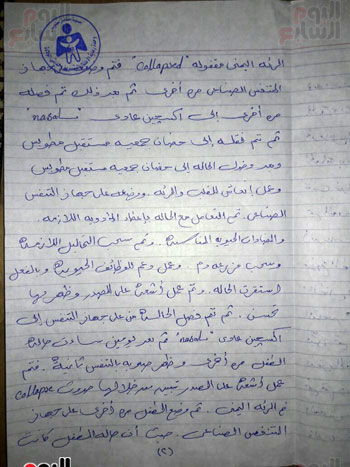 الرئه اليمنى مقفوله "Collapsed" فتم وضعه على جهاز
التنفس الصناعى مره أخرى ثم بعد ذلك تم فصله
مره أخرى إلى أكسجين عادى "nasal"
ثم تم نقله إلى حضان جمعيه مستقبل مطوبس
وبعد وصول الحاله إلى حضان جمعيه مستقبل مطوبس
وعمل إنعاش للقلب والرئه. ووضعه على جهاز التنفس
الصناعى. تم التعامل مع الحاله بإعطاء الأدويه اللازمه.
والمضادات الحيويه المناسبة. وتم سحب التحاليل اللازمة
وسحب مزرعه دم. وعمل دعم للوظائف الحيويه وبالفعل
استقرت الحاله. وتم عمل أشعة على الصدر وظهر بها
تحسن. ثم تم فصل الحالة من على جهاز التنفس إلى
أكسجين عادى "nasal" ثم بعد يومين ساءت حالة
الطفل مره أخرى وظهر صعوبه بالتنفس ثانية. فتم
عمل أشعة على الصدر تبين من خلالها حدوث Collapse
فى الرئه اليمنى. تم وضع الطفل مره أخرى على جهاز
التنفس الصناعى. حيث أن حاله الطفل كانت
(٢)
اليوم السابع